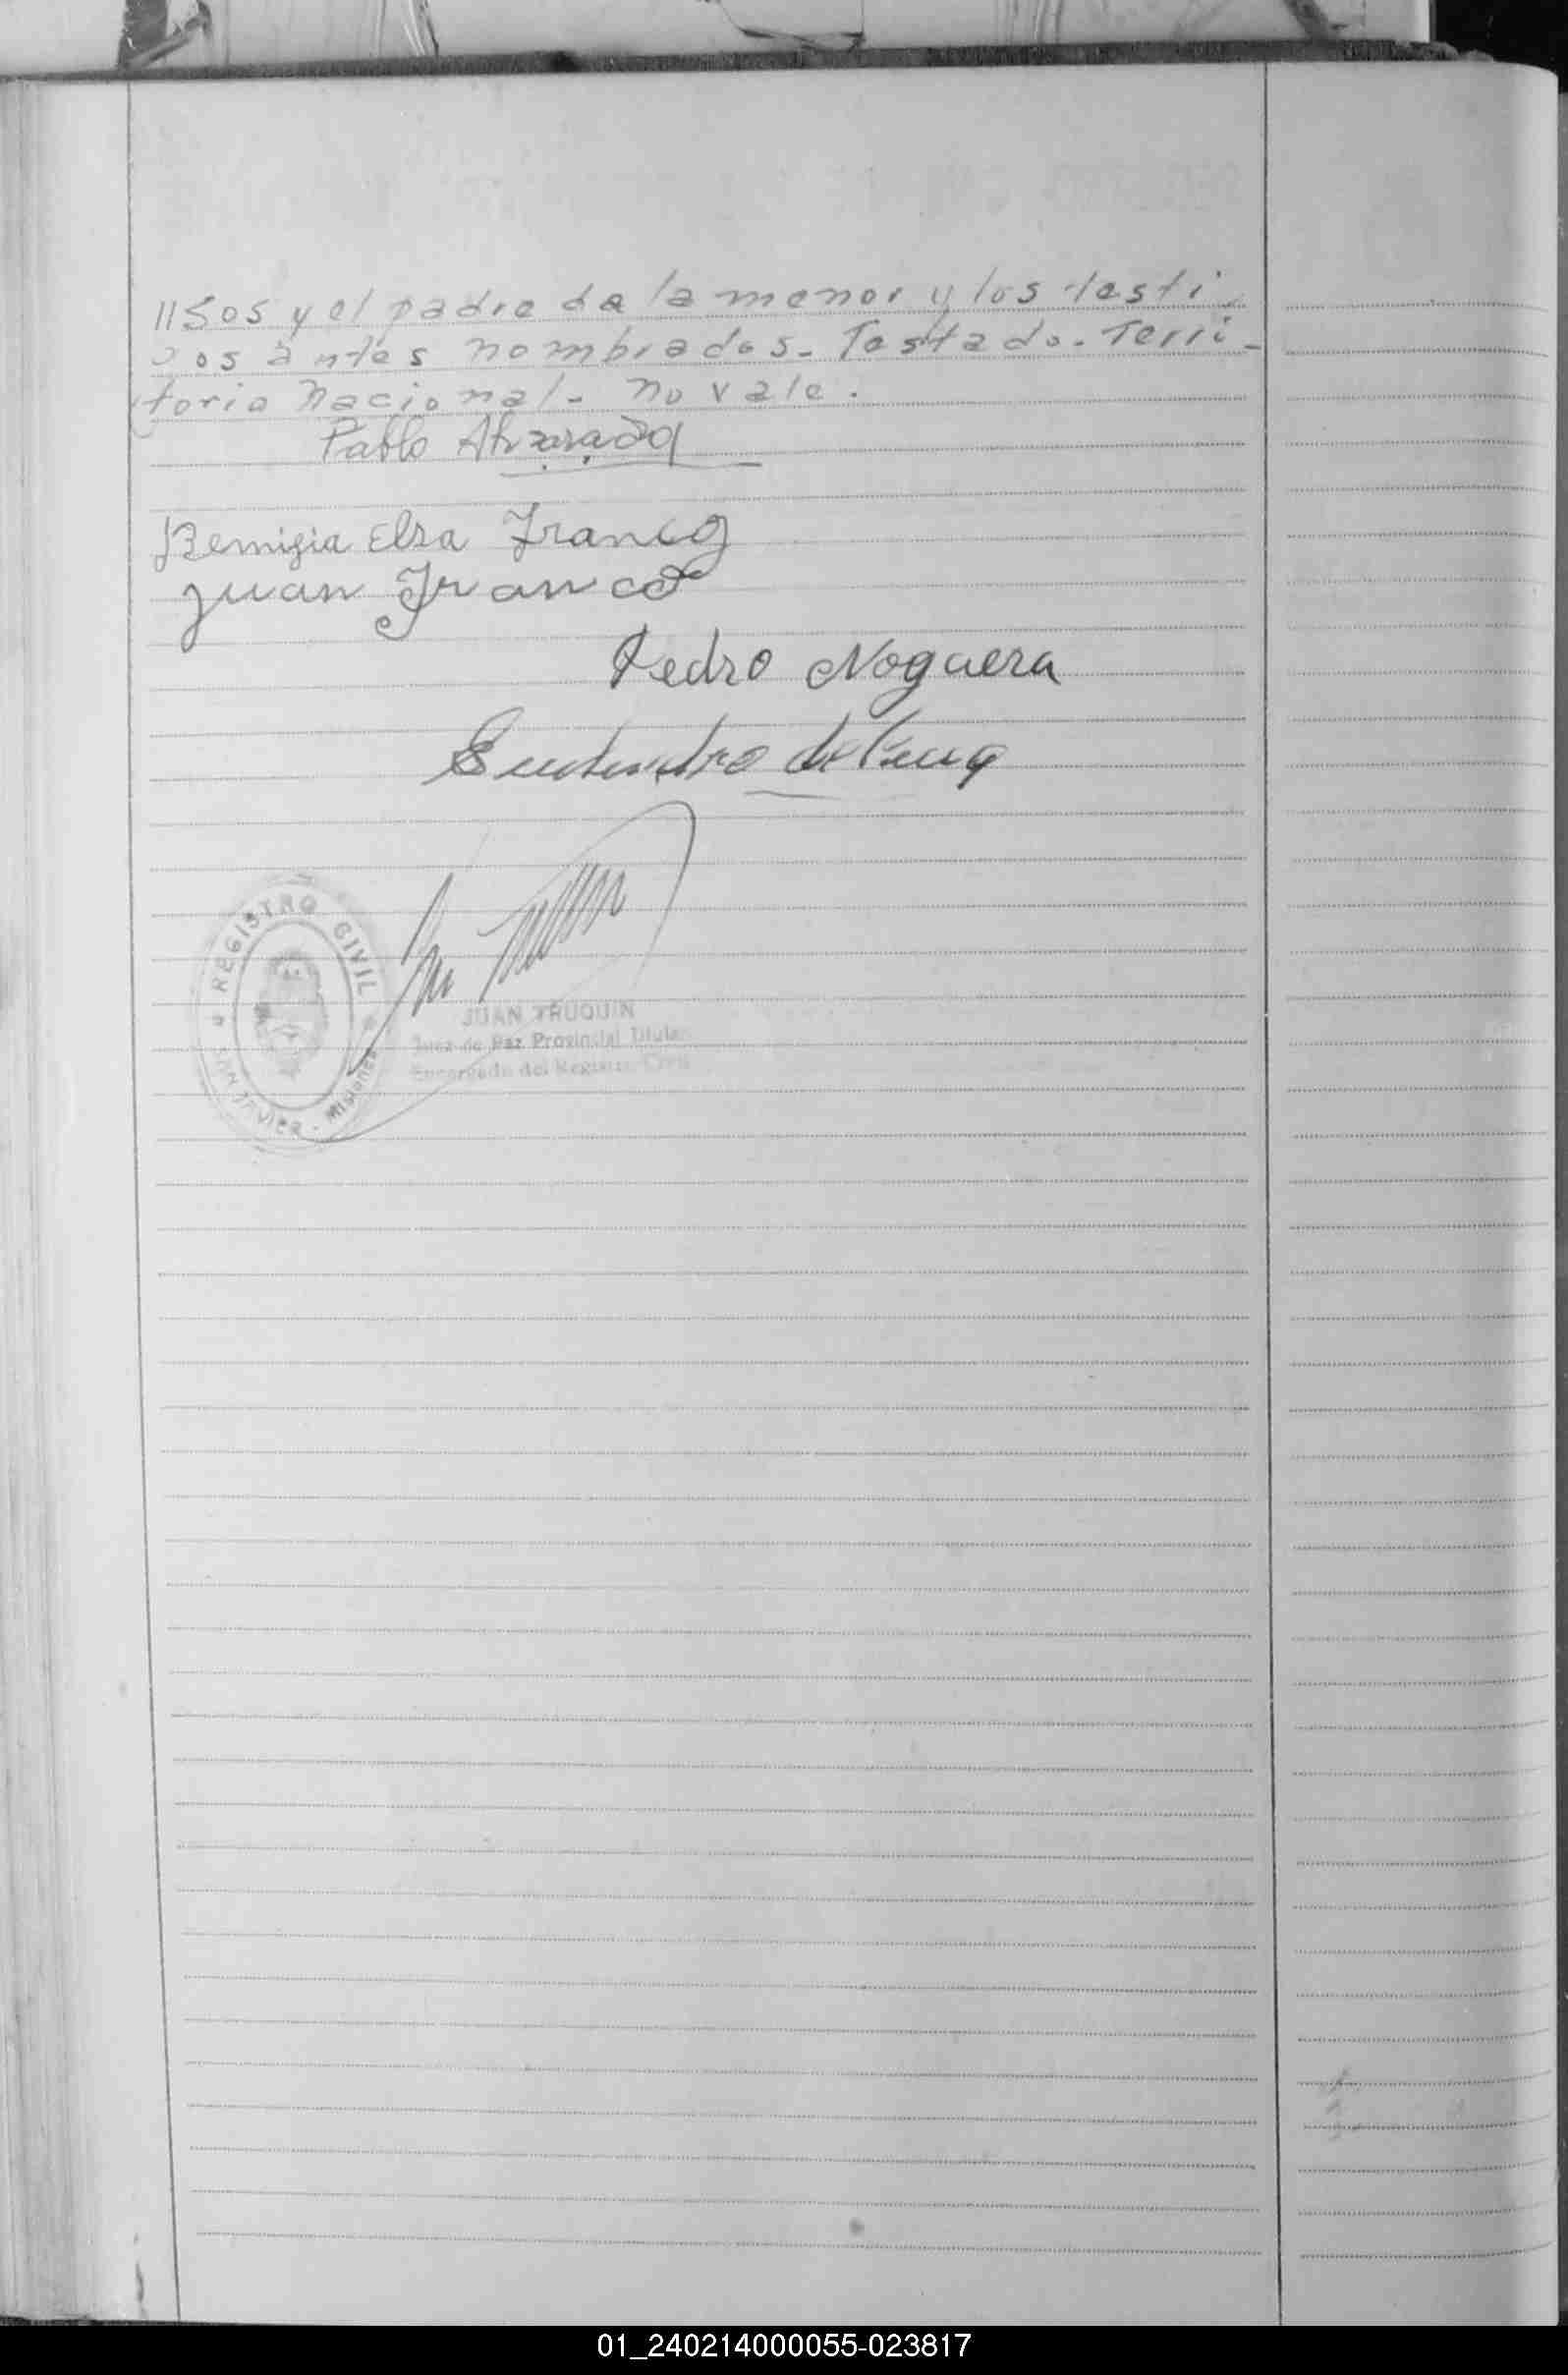 //sos y el padre de la menor y los testi
gos antes nombrados. Testado. Terri-
torio nacional - no vale.
Pablo Alvarado
Remigia Elsa Franco
Juan Franco
Pedro Noguera
REGISTRO CIVIL
SAN JAVIER - Misiones
JUAN TRUQUIN
Juez de Paz Provincial Titular
Encargado del Registro Civil
01_240214000055-023817